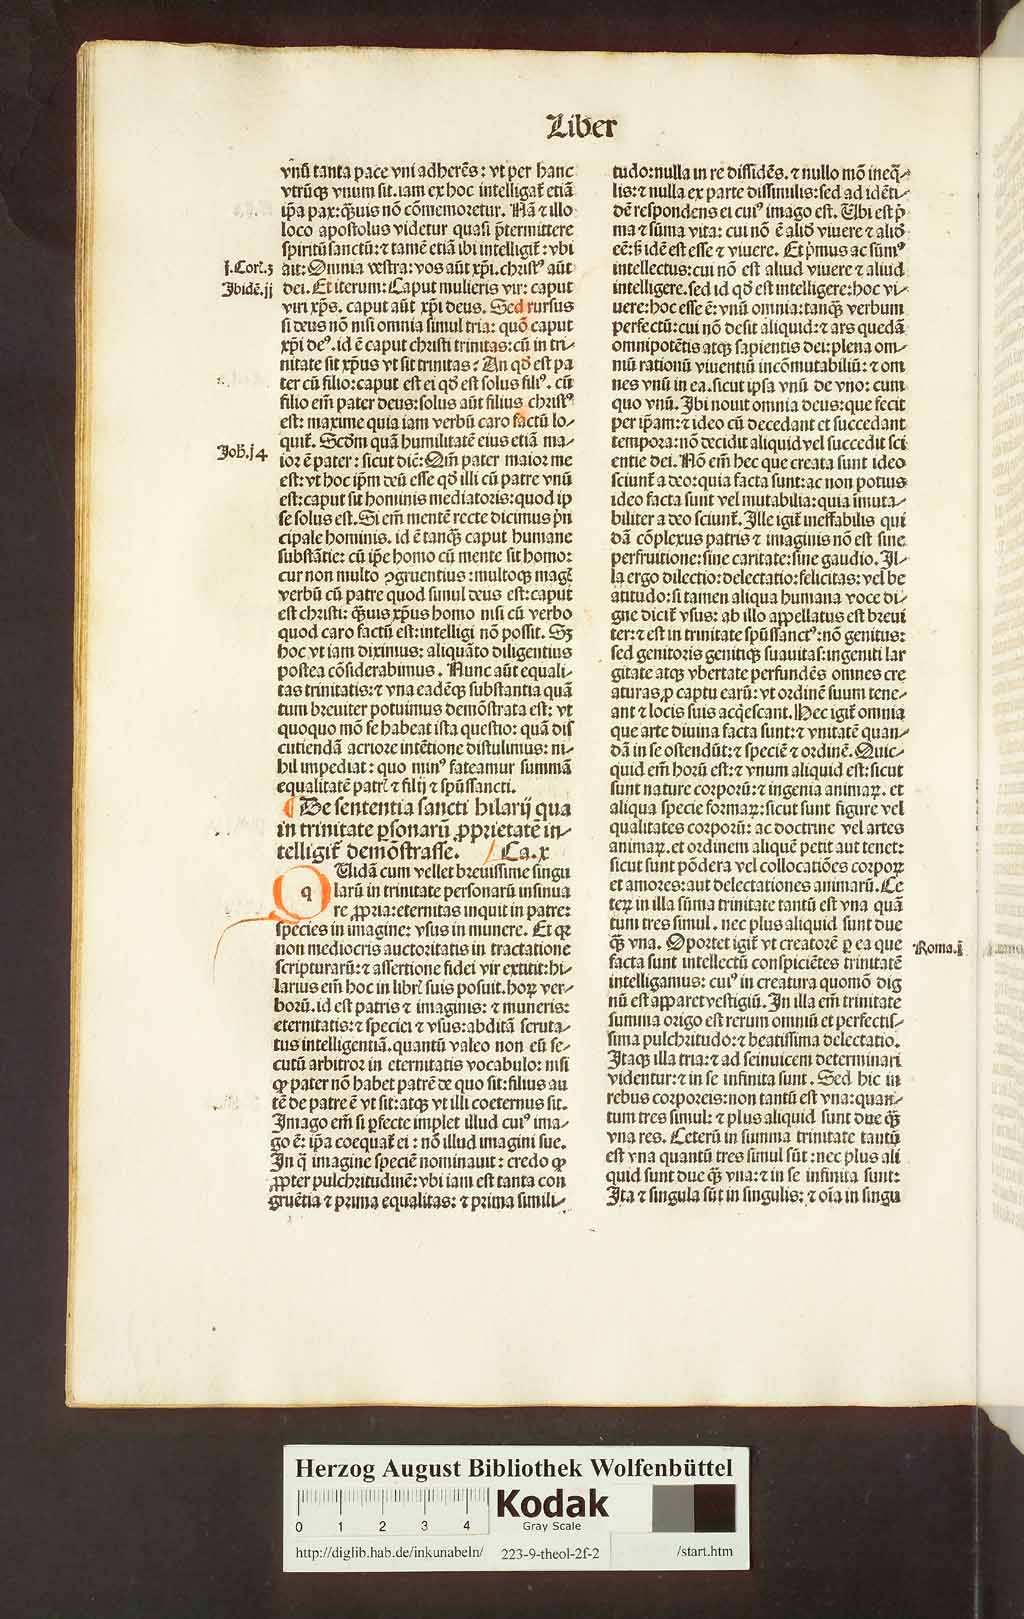 Liber
vnū tanta pace vni adherēs: vt per hanc
vtrūq̄ vnum sit. iam ex hoc intelligat̄ etiā
ip̄a pax: q̄uis nō cōmemoretur. Nā ⁊ illo
loco apostolus videtur quasi p̄termittere
spiritū sanctū: ⁊ tamē etiā ibi intelligit̄: vbi
j. Cort. 3
ait: Omnia vestra: vos aūt xp̄i. christꝰ aūt
Ibidē. jj
dei. Et iterum: Caput mulieris vir: caput
viri xp̄s. caput aūt xp̄i deus. Sed rursus
si deus nō nisi omnia simul tria: quō caput
xp̄i deꝰ. id ē caput christi trinitas: cū in tri-
nitate sit xp̄us vt sit trinitas? An qd̄ est pa
ter cū filio: caput est ei qd̄ est solus filiꝰ. cū
filio em̄ pater deus: solus aūt filius christꝰ
est: maxime quia iam verbū caro factū lo-
quit̄. Scd̄m quā humilitatē eius etiā ma-
Joh̄. j4
ior ē pater: sicut dic̄: Qm̄ pater maior me
est: vt hoc ip̄m deū esse qd̄ illi cū patre vnū
est: caput sit hominis mediatoris: quod ip
se solus est. Si em̄ mentē recte dicimus p̄n
cipale hominis. id ē tanq̄ caput humane
substātie: cū ip̄e homo cū mente sit homo:
cur non multo ꝯgruentius: multoq̄ maḡ
verbū cū patre quod simul deus est: caput
est christi: q̄uis xp̄us homo nisi cū verbo
quod caro factū est: intelligi nō possit. Sꝫ
hoc vt iam diximus: aliquāto diligentius
postea cōsiderabimus. Nunc aūt equali-
tas trinitatis: ⁊ vna eadēq̄ substantia quā
tum breuiter potuimus demōstrata est: vt
quoquo mō se habeat ista questio: quā dis
cutiendā acriore intētione distulimus: ni-
hil impediat: quo minꝰ fateamur summā
equalitatē patr̄ ⁊ filij ⁊ sp̄ussancti.
¶ De sententia sancti hilarij qua
in trinitate ꝑsonarū ꝓprietatē in-
telligit̄ demōstrasse. Ca. x
q Uidā cum vellet breuissime singu
larū in trinitate personarū insinua
re ꝓpria: eternitas inquit in patre:
species in imagine: vsus in munere. Et qꝛ
non mediocris auctoritatis in tractatione
scripturarū: ⁊ assertione fidei vir extitit: hi-
larius em̄ hoc in libr̄ suis posuit. hoꝝ ver-
borū. id est patris ⁊ imaginis: ⁊ muneris:
eternitatis: ⁊ speciei ⁊ vsus: abditā scruta-
tus intelligentiā. quantū valeo non eū se-
cutū arbitror in eternitatis vocabulo: nisi
qꝙ pater nō habet patrē de quo sit: filius au
tē de patre ē vt sit: atq̄ vt illi coeternus sit.
Imago em̄ si ꝑfecte implet illud cuiꝰ ima-
go ē: ip̄a coequat̄ ei: nō illud imagini sue.
In q̄ imagine speciē nominauit: credo ꝙ
ꝓpter pulchritudinē: vbi iam est tanta con
gruētia ⁊ prima equalitas: ⁊ prima simili-
tudo: nulla in re dissidēs. ⁊ nullo mō ineq̄-
lis: ⁊ nulla ex parte dissimilis: sed ad idēti-
dē respondens ei cuiꝰ imago est. Ubi est p̄
ma ⁊ sūma vita: cui nō ē aliđ viuere ⁊ aliđ
eē: s̄ idē est esse ⁊ viuere. Et p̄mus ac sūmꝰ
intellectus: cui nō est aliud viuere ⁊ aliud
intelligere. sed id qd̄ est intelligere: hoc vi-
uere: hoc esse ē: vnū omnia: tanq̄ verbum
perfectū: cui nō desit aliquid: ⁊ ars quedā
omnipotētis atq̄ sapientis dei: plena om-
niū rationū viuentiū incōmutabiliū: ⁊ om
nes vnū in ea. sicut ipsa vnū de vno: cum
quo vnū. Ibi nouit omnia deus: que fecit
per ip̄am: ⁊ ideo cū decedant et succedant
tempora: nō decidit aliquid vel succedit sci
entie dei. Nō em̄ hec que creata sunt ideo
sciunt̄ a deo: quia facta sunt: ac non potius
ideo facta sunt vel mutabilia: quia īmuta-
biliter a deo sciunt̄. Ille igit̄ ineffabilis qui
dā cōplexus patris ⁊ imaginis nō est sine
perfruitione: sine caritate: sine gaudio. Il-
la ergo dilectio: delectatio: felicitas: vel be
atitudo: si tamen aliqua humana voce di-
gne dicit̄ vsus: ab illo appellatus est breui
ter: ⁊ est in trinitate sp̄ussanctꝰ: nō genitus:
sed genitoris genitiq̄ suauitas: ingenti lar
gitate atq̄ vbertate perfundēs omnes cre
aturas ꝓ captu earū: vt ordinē suum tene-
ant ⁊ locis suis acq̄escant. Hec igit̄ omnia
que arte diuina facta sunt: ⁊ vnitatē quan-
dā in se ostendūt: ⁊ speciē ⁊ ordinē. Quic-
quid em̄ horū est: ⁊ vnum aliquid est: sicut
sunt nature corporū: ⁊ ingenia animaꝝ. et
aliqua specie formaꝝ: sicut sunt figure vel
qualitates corporū: ac doctrine vel artes
animaꝝ. et ordinem aliquē petit aut tenet:
sicut sunt pōdera vel collocatiōes corpoꝝ
et amores: aut delectationes animarū. Ce
teꝝ in illa sūma trinitate tantū est vna quā
tum tres simul. nec plus aliquid sunt due
q̄ vna. Oportet igit̄ vt creatorē ꝑ ea que
Roma. j
facta sunt intellectū conspiciētes trinitatē
intelligamus: cuiꝰ in creatura quomō dig
nū est apparet vestigiū. In illa em̄ trinitate
summa origo est rerum omniū et perfectis-
sima pulchritudo: ⁊ beatissima delectatio.
Itaq̄ illa tria: ⁊ ad seinuicem determinari
videntur: ⁊ in se infinita sunt. Sed hic in
rebus corporeis: non tantū est vna: quan-
tum tres simul: ⁊ plus aliquid sunt due q̄
vna res. Ceterū in summa trinitate tantū
est vna quantū tres simul sūt: nec plus ali
quid sunt due q̄ vna: ⁊ in se infinita sunt:
Ita ⁊ singula sūt in singulis: ⁊ oīa in singu
Herzog August Bibliothek Wolfenbüttel
0 1 2 3 4
Kodak
Gray Scale
http://diglib.hab.de/inkunabeln/ 223-9-theol-2f-2 /start.htm